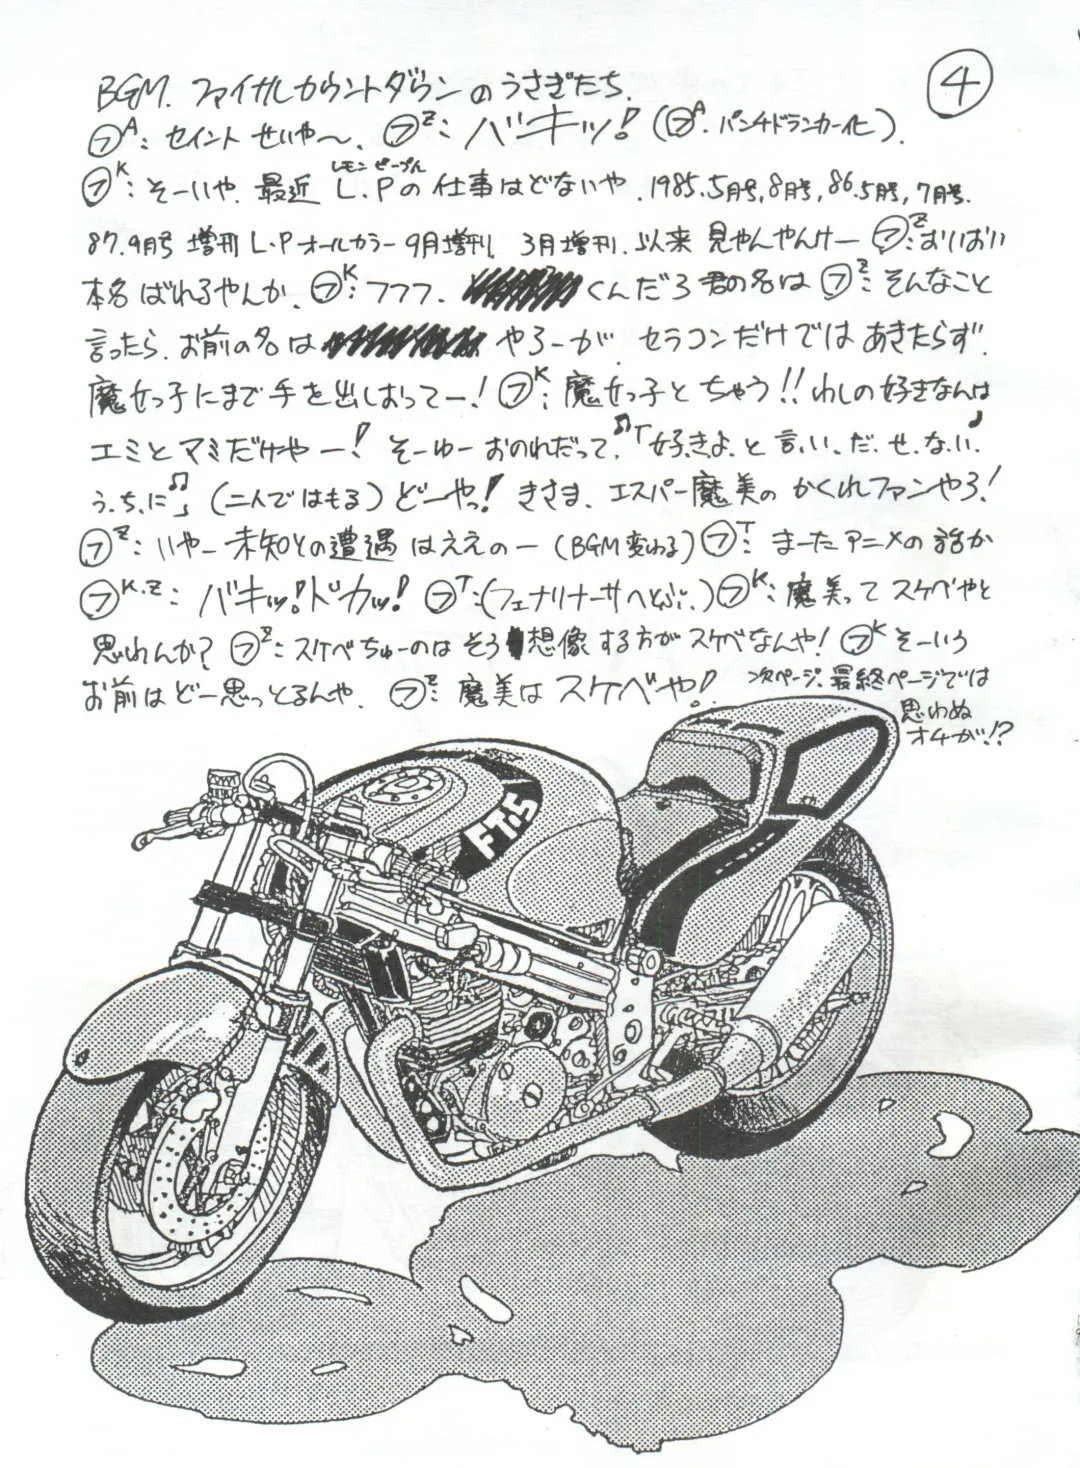 BGM. ファイナルカウントダウンのうさぎたち.
④
㋫A: セイント せいや〜、㋫Z: バキッ! (㋫A. パンチドランカー化).
㋫K: そーいや. 最近 L.Pの 仕事はどないや. 1985.5月号, 8月号, 86.5月号, 7月号.
レモン ピープル
87.9月号 増刊 L.P オールカラー 9月増刊 3月増刊. 以来 見やんやんけー ㋫Z: おいおい
本名 ばれるやんか. ㋫K: フフフ. くんだろ 君の名は ㋫Z: そんなこと
言ったら. お前の名は やろーが. セラコンだけでは あきたらず.
魔女っ子にまで手を出しおってー! ㋫K: 魔女っ子と ちゃう!! わしの好きなんは
エミとマミだけやー! そーゆー おのれだって.♫「好.き.よ. と 言.い.だ.せ.な.い.♪
う.ち.に♫」(二人ではもる) どーや! きさま、エスパー魔美の かくれファンやろ!
㋫Z: いやー 未知との遭遇 はええのー (BGM変わる) ㋫T: まーた アニメの 話か
㋫K.Z: バキッ!ドカッ! ㋫T:(フェナリナーサへとぶ.) ㋫K: 魔美って スケベやと
思われんか? ㋫Z: スケベちゅーのは そう 想像する方が スケベなんや! ㋫K そーいう
お前は どー思っとるんや. ㋫Z: 魔美は スケベや!
次ページ. 最終ページでは
思わぬ
オチが!?
FT.5